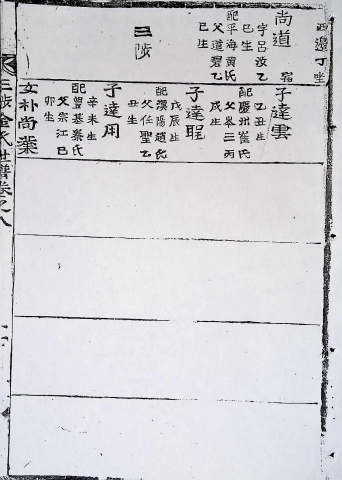 西邊丁坐
尚道
字呂汝乙
巳生
配平海黄氏
父道碧乙
巳生
三陟
子達雲
乙丑生
配慶州崔氏
父岑三丙
戌生
子達聖
戊辰生
配漢陽趙氏
父任聖乙
丑生
子達用
辛未生
配豐基秦氏
父宗江己
卯生
女朴尚業
三陟金氏世譜卷之八